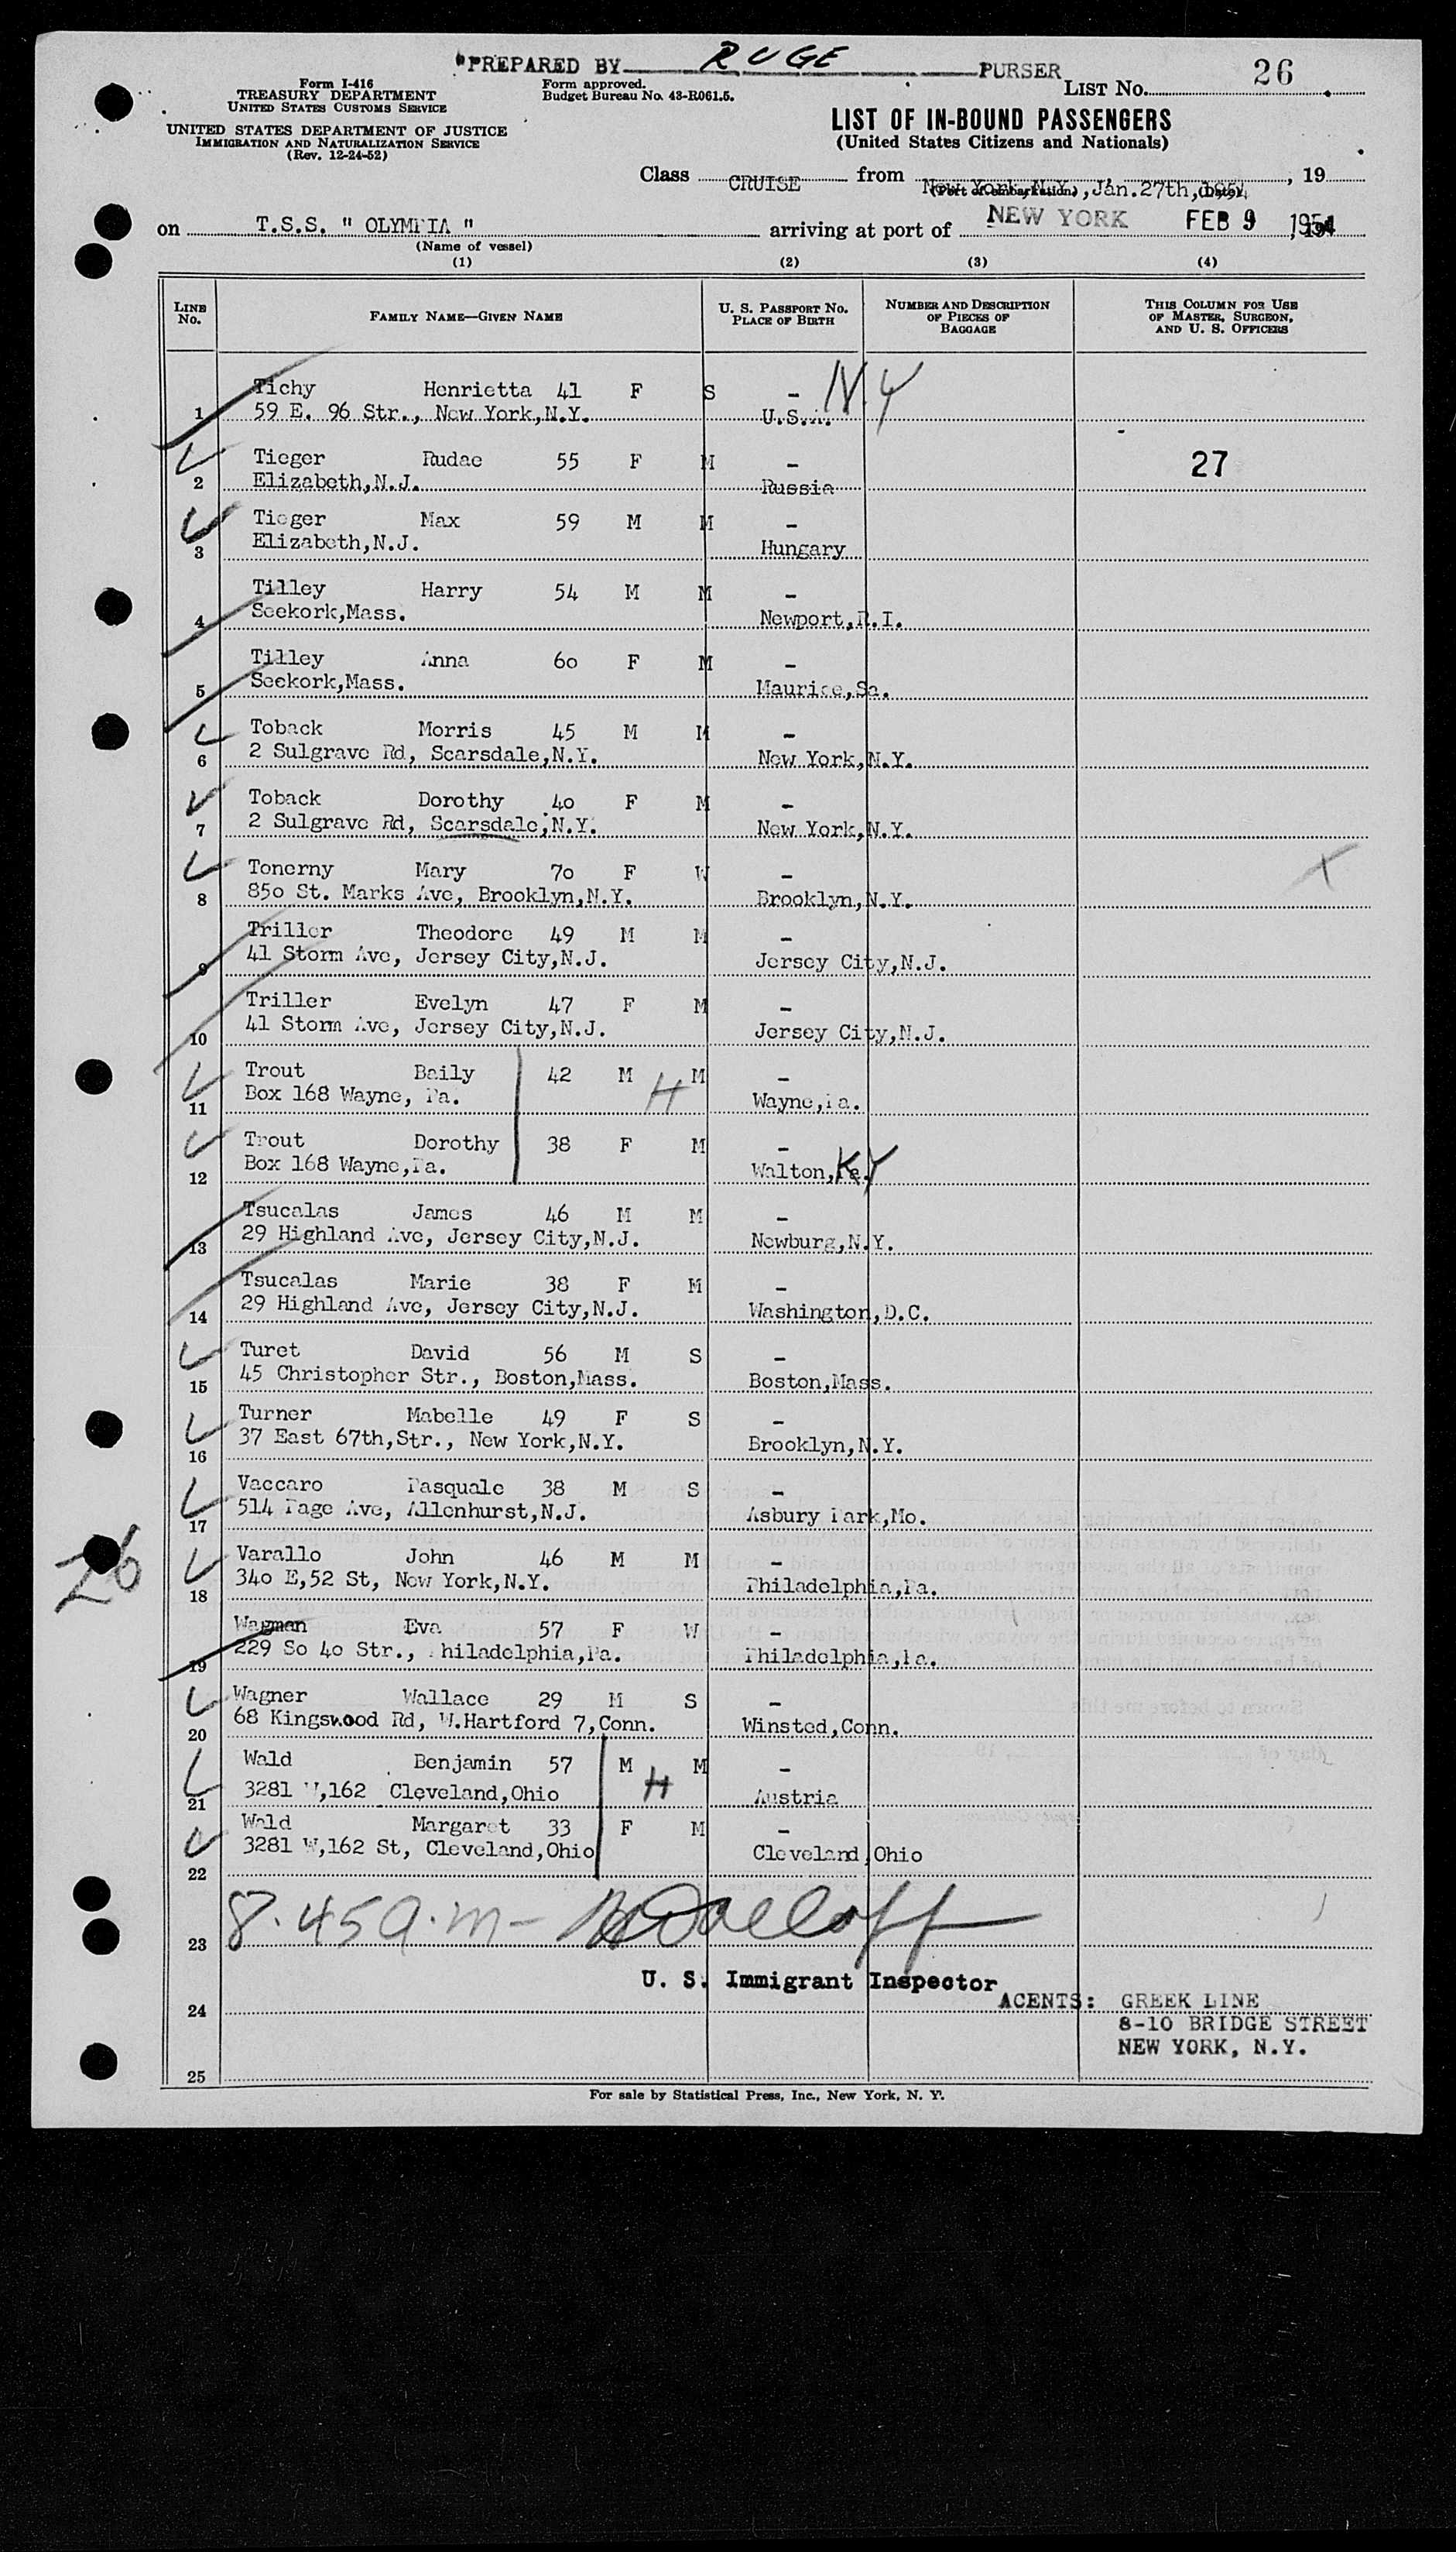 PREPARED BY RUGE PURSER
Form I-416
TREASURY DEPARTMENT
UNITED STATES CUSTOMS SERVICE
Form approved.
Budget Bureau No. 43-R061.5.
LIST NO. 26
UNITED STATES DEPARTMENT OF JUSTICE
IMMIGRATION AND NATURALIZATION SERVICE
(Rev. 12-24-52)
LIST OF IN-BOUND PASSENGERS
(United States Citizens and Nationals)
Class CRUISE from New York, N.Y., Jan. 27th, 1954, 19
(Port of embarkation) (Date)
on T.S.S. " OLYMPIA " arriving at port of NEW YORK FEB 9 1954
(Name of vessel)
(1) (2) (3) (4)
LINE NO. FAMILY NAME—GIVEN NAME U. S. PASSPORT NO. PLACE OF BIRTH NUMBER AND DESCRIPTION OF PIECES OF BAGGAGE THIS COLUMN FOR USE OF MASTER, SURGEON, AND U. S. OFFICERS
Tichy Henrietta 41 F S - N.Y
1 59 E. 96 Str., New York,N.Y. U.S.A.
Tieger Rudae 55 F M - 27
2 Elizabeth,N.J. Russia
Tieger Max 59 M M -
3 Elizabeth,N.J. Hungary
Tilley Harry 54 M M -
4 Seekork,Mass. Newport,R.I.
Tilley Anna 60 F M -
5 Seekork,Mass. Maurice,Sa.
Toback Morris 45 M M -
6 2 Sulgrave Rd, Scarsdale,N.Y. New York,N.Y.
Toback Dorothy 40 F M -
7 2 Sulgrave Rd, Scarsdale,N.Y. New York,N.Y.
Tonerny Mary 70 F W - X
8 850 St. Marks Ave, Brooklyn,N.Y. Brooklyn,N.Y.
Triller Theodore 49 M M -
9 41 Storm Ave, Jersey City,N.J. Jersey City,N.J.
Triller Evelyn 47 F M -
10 41 Storm Ave, Jersey City,N.J. Jersey City,N.J.
Trout Baily 42 M H M -
11 Box 168 Wayne, Pa. Wayne,Pa.
Trout Dorothy 38 F M -
12 Box 168 Wayne,Pa. Walton, KY
Tsucalas James 46 M M -
13 29 Highland Ave, Jersey City,N.J. Newburg,N.Y.
Tsucalas Marie 38 F M -
14 29 Highland Ave, Jersey City,N.J. Washington,D.C.
Turet David 56 M S -
15 45 Christopher Str., Boston,Mass. Boston,Mass.
Turner Mabelle 49 F S -
16 37 East 67th,Str., New York,N.Y. Brooklyn,N.Y.
Vaccaro Pasquale 38 M S -
17 514 Page Ave, Allenhurst,N.J. Asbury Park,Mo.
26
Varallo John 46 M M -
18 340 E,52 St, New York,N.Y. Philadelphia,Pa.
Wagman Eva 57 F W -
19 229 So 40 Str., Philadelphia,Pa. Philadelphia,Pa.
Wagner Wallace 29 M S -
20 68 Kingswood Rd, W.Hartford 7,Conn. Winsted,Conn.
Wald Benjamin 57 M H M -
21 3281 W,162 Cleveland,Ohio Austria
Wald Margaret 33 F M -
22 3281 W,162 St, Cleveland,Ohio Cleveland,Ohio
23 8.45 a.m-
U. S. Immigrant Inspector
24 AGENTS: GREEK LINE
8-10 BRIDGE STREET
NEW YORK, N.Y.
25
For sale by Statistical Press, Inc., New York, N. Y.